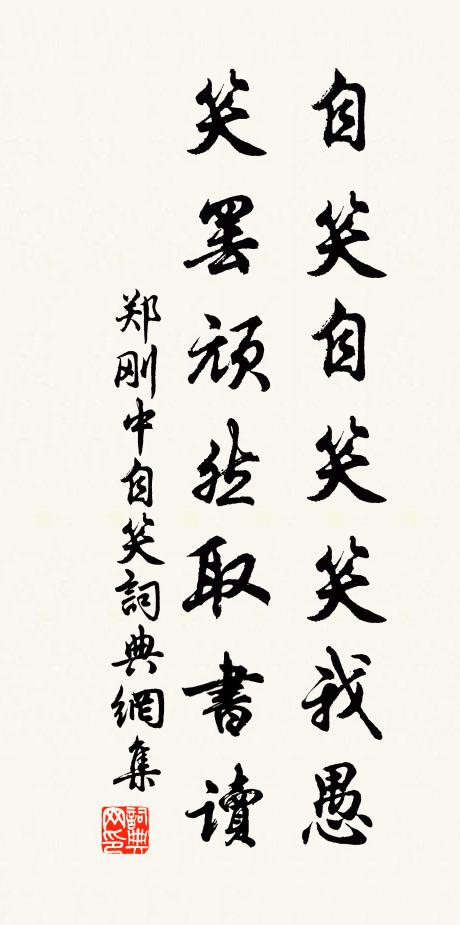 自笑自笑笑我愚
笑罢頑然取書讀
郑刚中自笑詞典網集
詞典网印